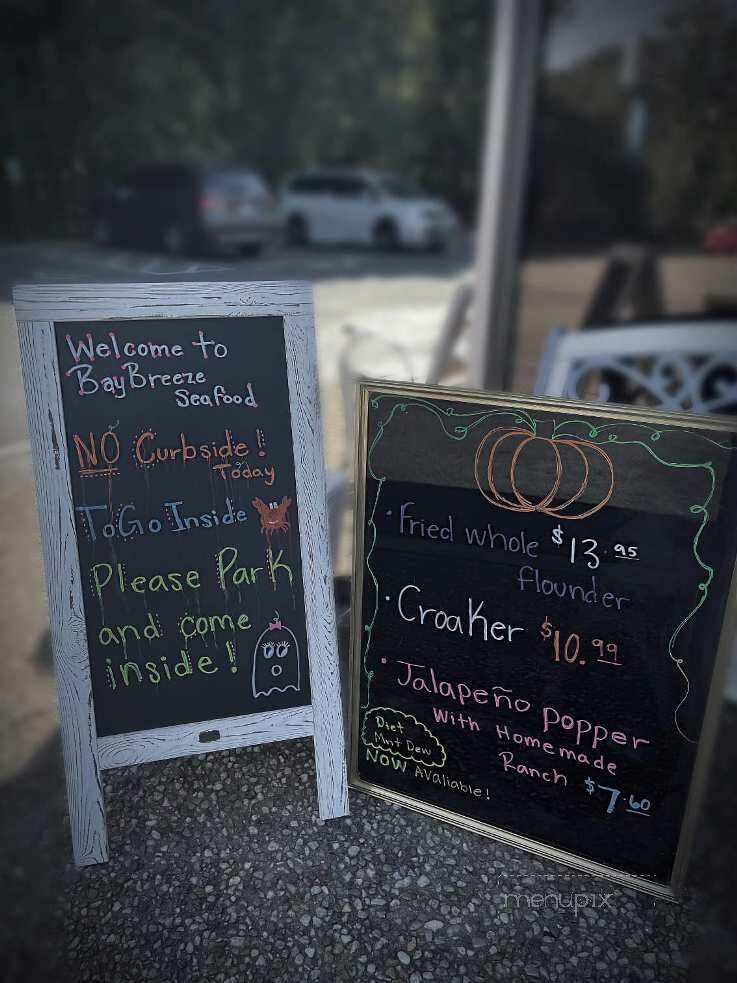 Welcome to
BayBreeze
Seafood
NO Curbside!
Today
ToGo Inside
Please Park
and come
inside!
• Fried whole $13.95
flounder
• Croaker $10.99
• Jalapeño popper
With Homemade
Ranch $7.60
Diet
Mnt Dew
NOW Avaliable!
menupix